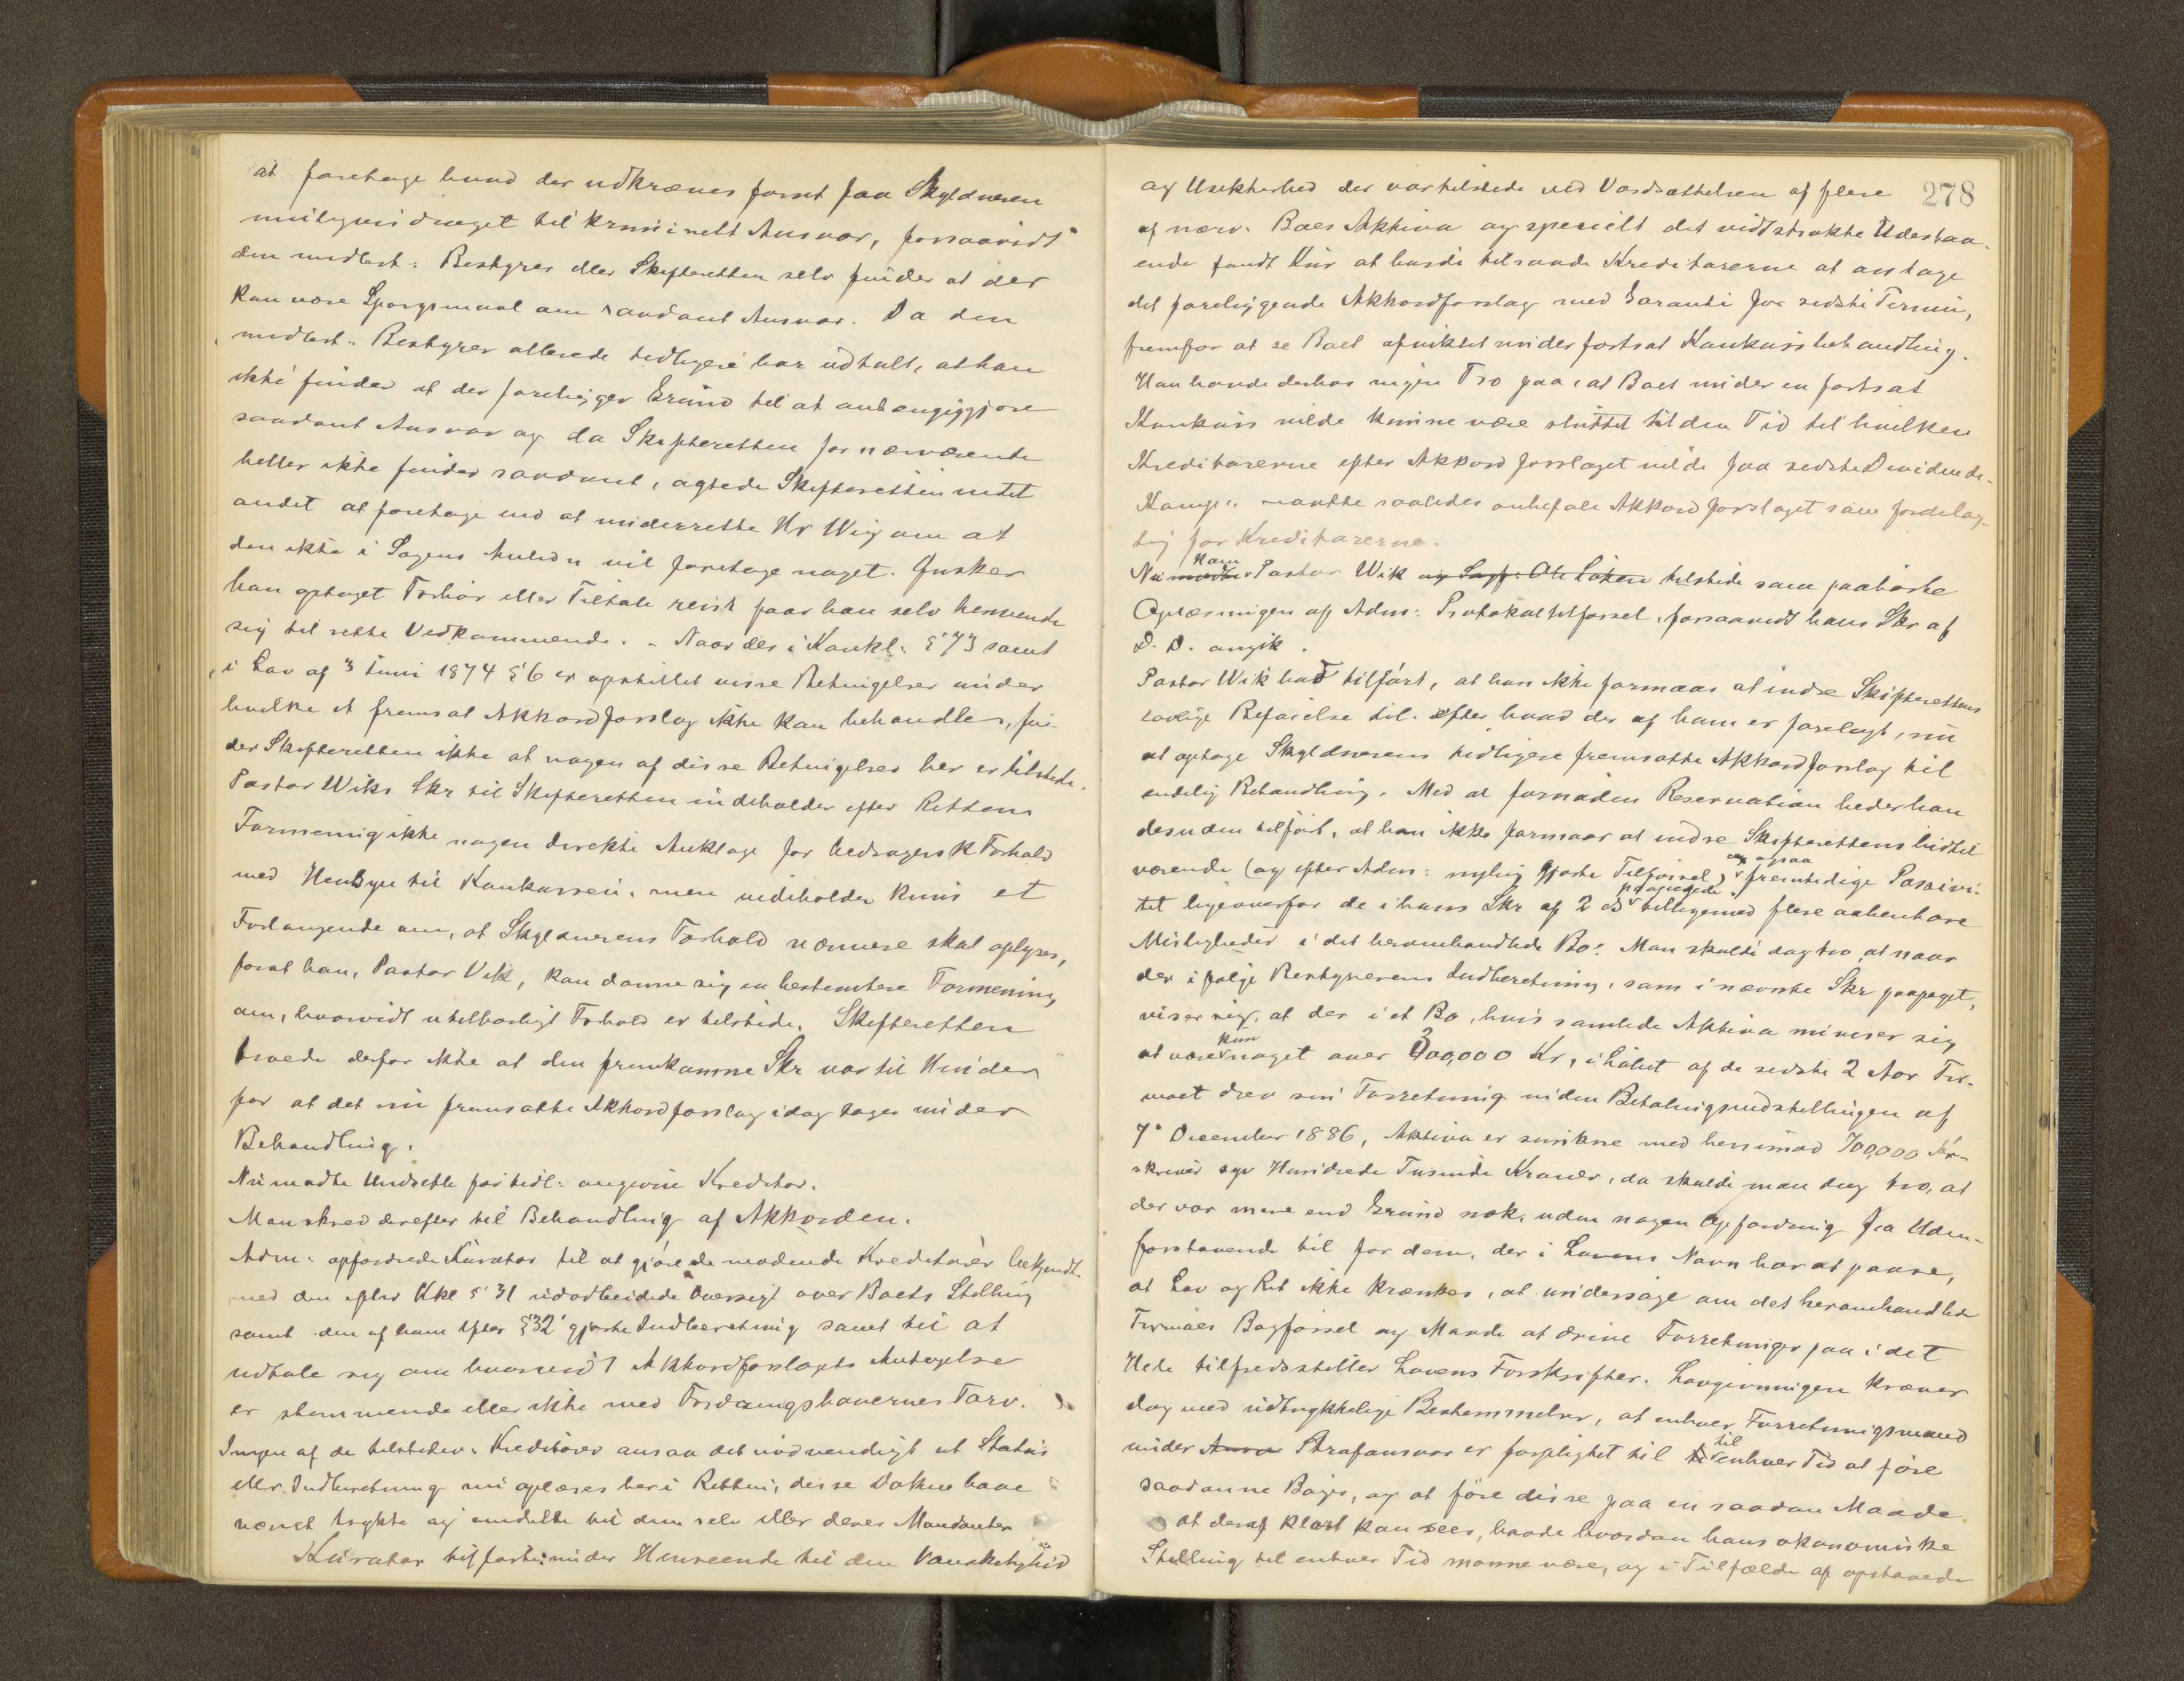 at foretage hvad der udkræves forat faa Skyldneren
muligens draget til kriminelt Ansvar, forsaavidt
den midlert: Bestyrer eller Skifteretten selv finder at der
kan være Spørgsmaal om saadant Ansvar. Da den
midlert: Bestyrer allerede tidligere har udtalt, at han
ikke finder at der foreligger Grund til at anhængiggjøre
saadant Ansvar og da Skifteretten for nærværende
heller ikke finder saadant, agtede Skifteretten intet
andet at foretage end at underrette Hr Wig om at
den ikke i Sagens Anledn vil foretage noget. Ønsker
han optaget Forhør eller Tiltale reist faar han selv henvende
sig til rette Vedkommende. - Naar der i Konkl: § 73 samt
i Lov af 3 Juni 1874 § 6 er opstillet visse Betingelser under
hvilke et fremsat Akkordforslag ikke kan behandles, fin-
der Skifteretten ikke at nogen af disse Betingelser her er tilstede.
Pastor Wiks Skr til Skifteretten indeholder efter Rettens
Formening ikke nogen direkte Anklage for bedragersk Forhold
med Hensyn til Konkursen, men indeholder kun et
Forlangende om, at Skyldnerens Forhold nærmere skal oplyses,
forat han, Pastor Vik, kan danne sig en bestemtere Formening
om, hvorvidt utilbørligt Forhold er tilstede. Skifteretten
troede derfor ikke at den fremkomne Skr var til Hinder
for at det nu fremsatte Akkordforslag idag toges under
Behandling.
Nu mødte Undseth for tidl: angivne Kreditor.
Man skred derefter til Behandling af Akkorden.
Adm: opfordrede Kurator til at gjøre de mødende Kreditorer bekjendt
med den efter Kkl § 31 udarbeidede Oversigt over Boets Stilling
samt den af ham efter § 32 gjorte Indberetning samt til at
udtale sig om hvorvidt Akkordforslagets Antagelse
er stemmende eller ikke med Fordringshavernes Tarv.
Ingen af de tilstedev: Kreditorer ansaa det nødvendigt at Status
eller Indberetning nu oplæses her i Retten, da disse Dokum have
været trykte og omdelte til dem selv eller deres Mandanter
Kurator tilførte: under Henseende til den Vanskelighed
278
og Usikkerhed der var tilstede ved Værdsættelsen af flere
af nærv: Boes Aktiva og specielt det vidtstrakte Udestaa-
ende fandt Kur at burde tilraade Kreditorerne at antage
det foreliggende Akkordforslag med Garanti for sidste Termin,
fremfor at se Boet afviklet under fortsat Konkursbehandling.
Han havde derhos ingen Tro paa, at Boet under en fortsat
Konkurs vilde kunne være sluttet til den Tid til hvilken
Kreditorerne efter Akkordforslaget vilde faa sidste Dividende.
maatte saaledes anbefale Akkordforslaget som fordelag-
tig for Kreditorerne.
Nu kom Pastor Wik og Sagf: Ole tilstede som paahørte
Oplæsningen af Adm: Protokoltilførsel, forsaavidt hans Skr af
D. D. angik.
Pastor Wik bad tilført, at han ikke formaar at indse Skifterettens
lovlige Beføielse til efter hvad der af ham er forelagt, nu
at optage Skyldnerens tidligere fremsatte Akkordforslag til
endelig Behandling. Med al fornøden Reservation beder han
desuden tilført, at han ikke formaar at indse Skifterettens hidtil
værende (og efter Adm: nylig gjorte Tilførsel) og ogsaa fremtidige Passivi-
tet ligeoverfor de i hans Skr af 2 ds paapegede tilligemed flere aabenbare
Misligheder i det heromhandlede Bo: Man skulde dog tro, at naar
der ifølge Bestyrerens Indberetning, som i nævnte Skr paapeget,
viser sig, at der i et Bo, hvis samlede Aktiva udviser sig
at være kun noget over 300,000 Kr, i Løbet af de sidste 2 Aar Fir-
maet drev sin Forretning inden Betalingsindstillingen af
7 December 1886, Aktiva er svundne med henimod 700,000 Kr -
skriver syv Hundrede Tusinde Kroner, da skulde man dog tro, at
der var mere end Grund nok, uden nogen Opfordring fra Uden-
forstaaende til for dem, der i Lovens Navn har at passe,
at Lov og Ret ikke krænkes, at undersøge om det heromhandlede
Firmaes Bogførsel og Maade at drive Forretninger paa i det
Hele tilfredsstiller Lovens Forskrifter. Lovgivningen kræver
dog med udtrykkelige Bestemmelser, at enhver Forretningsmand
under Ansva Strafansvar er forpligtet til til enhver Tid at føre
saadanne Bøger, og at føre disse paa en saadan Maade,
at deraf klart kan sees, baade hvordan hans økonomiske
Stilling til enhver Tid monne være, og i Tilfælde af opstaaede